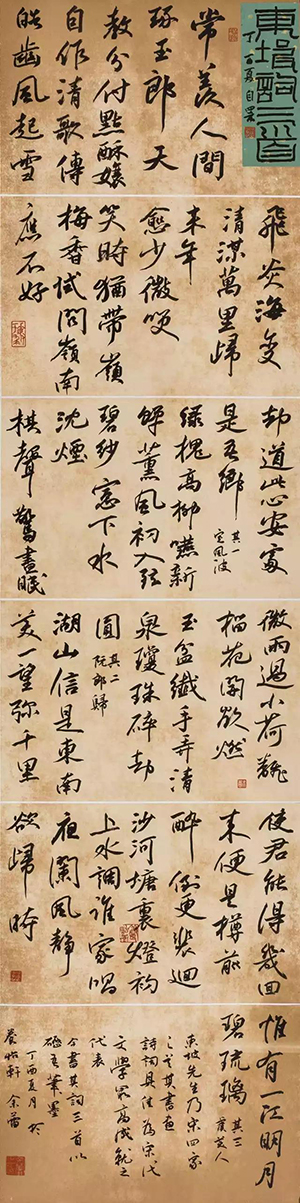 東坡詞三首
丁酉夏自署
常羨人間
琢玉郎天
教分付點酥孃
自作清歌傳
皓齒風起雪
飛炎海變
清涼萬里歸
來年
愈少微咲
笑時猶帶嶺
梅香試問嶺南
應不好
却道此心安處
是吾鄉 其一 定風波
綠槐高柳咽新
蟬薰風初入弦
碧紗窓下水
沈煙
棋聲驚晝眠
微雨過小荷翻
榴花開欲燃
玉盆纖手弄清
泉瓊珠碎却
圓 其二 阮郎歸
湖山信是東南
美一望彌千里
使君能得幾回
來便是樽前
醉倒更裴迴
沙河塘裏燈初
上水調誰家唱
夜闌風靜
欲歸時
惟有一江明月
碧琉璃 其三 虞美人
東坡先生乃宋四家
之一其書畫
詩詞具佳為宋代
文學最高成就之
代表
今書其詞三首以
礪吾筆墨
丁酉夏月於
養怡軒 余蕾